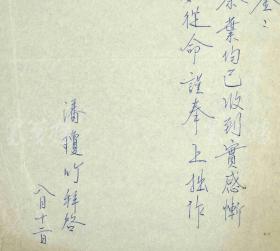 茶葉均已收到實感慚
從命謹奉上拙作
潘瓊竹拜啓
八月十二日